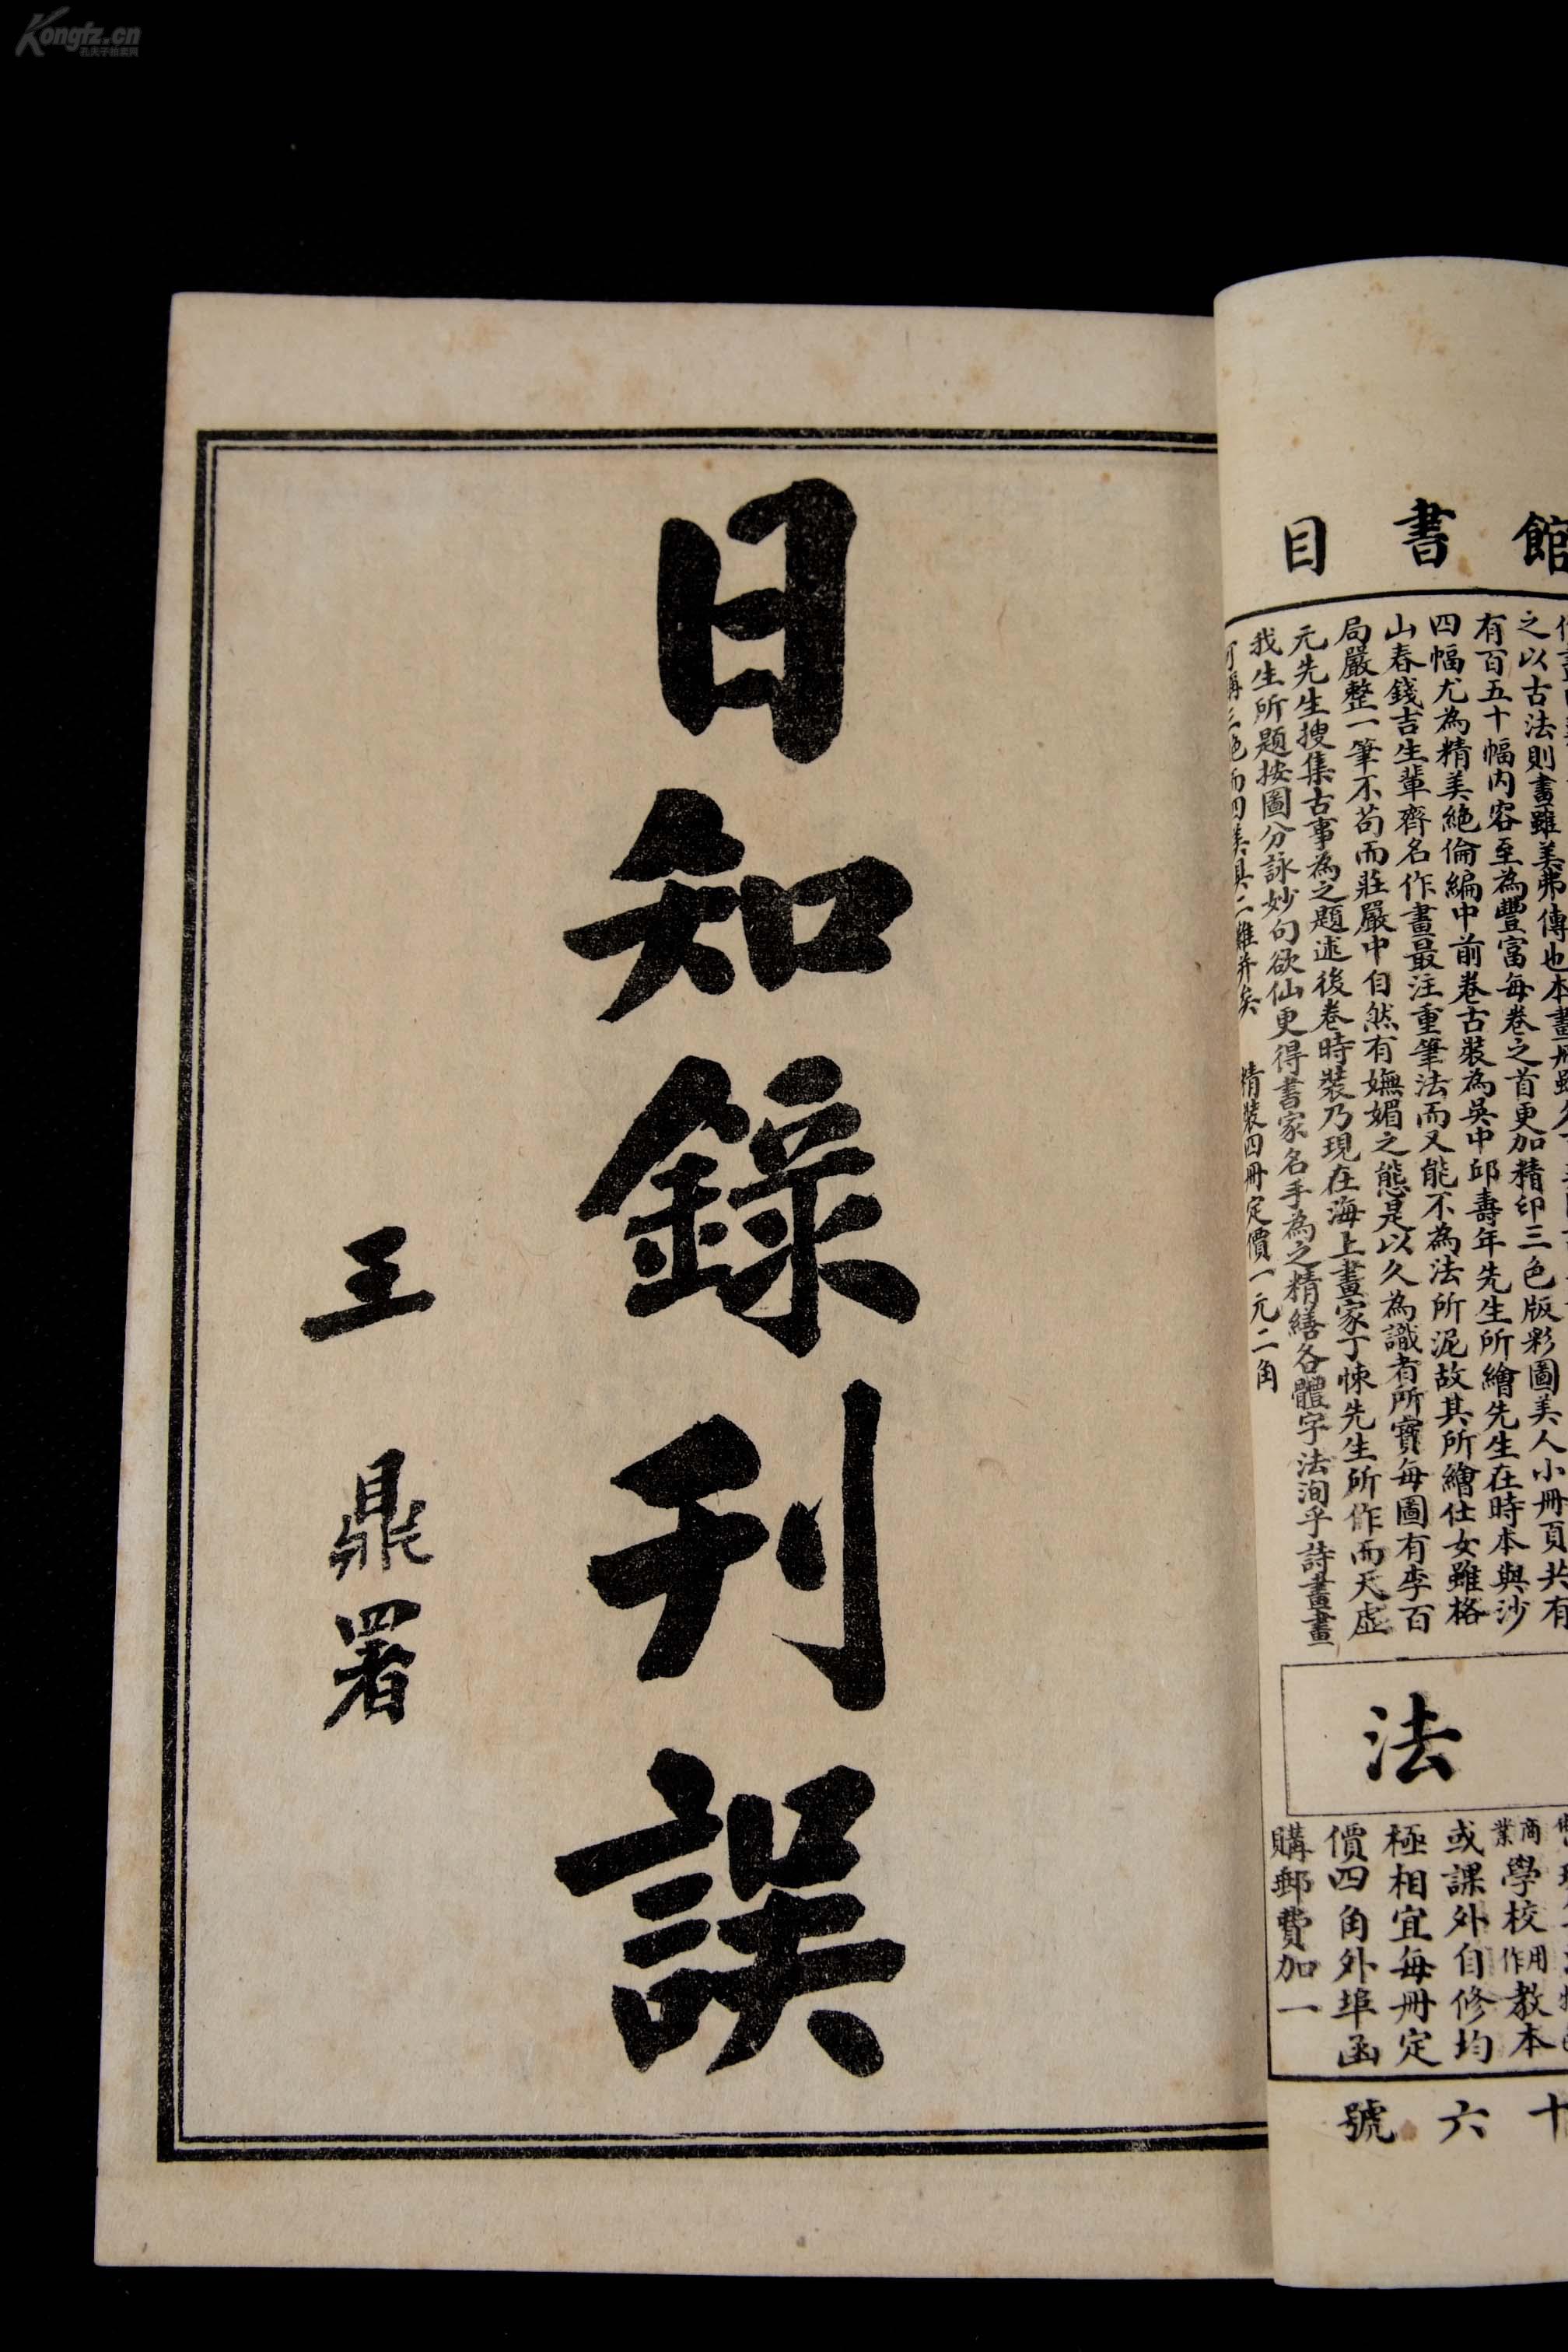 Kongfz.cn
館書目
之以古法則畫雖美弗傳也本畫冊
有百五十幅內容至為豐富每卷之首更加精印三色版彩圖美人小冊頁共有
四幅尤為精美絕倫編中前卷古裝為吳中邱壽年先生所繪先生在時本與沙
山春錢吉生輩齊名作畫最注重筆法而又能不為法所泥故其所繪仕女雖格
局嚴整一筆不苟而莊嚴中自然有嫵媚之態是以久為識者所寶每圖有李百
元先生搜集古事為之題述後卷時裝乃現在海上畫家丁悚先生所作而天虛
我生所題按圖分詠妙句欲仙更得書家名手為之精繕各體字法洵乎詩畫畫
精裝四冊定價一元二角
法
商業學校用作教本
或課外自修均
極相宜每冊定
價四角外埠函
購郵費加一
十六號
日知錄刊誤
王鼎署